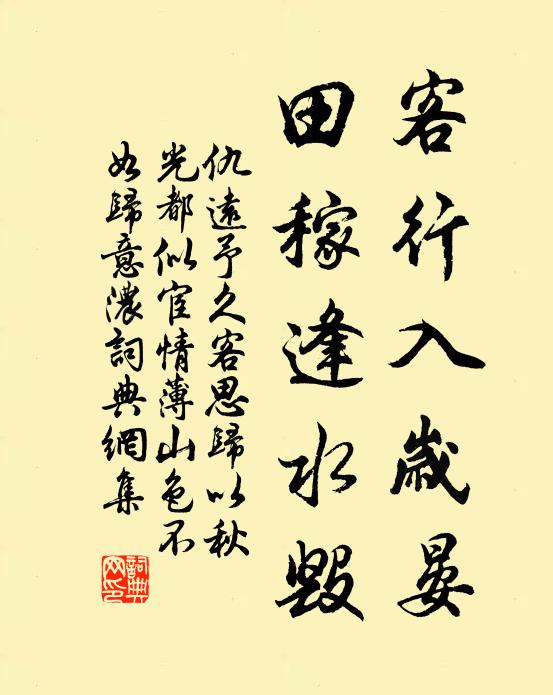 客行入歲晏
田稼逢水毀
仇遠予久客思歸以秋
光都似宦情薄山色不
如歸意濃詞典網集
詞典
网印